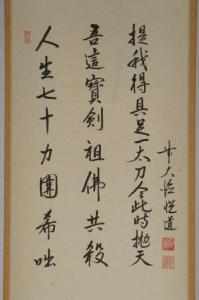 人生七十力圍希咄
吾這寶劍祖佛共殺
提我得具足一太刀今此時抛天
悦道